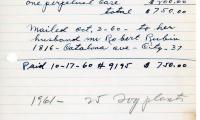 one perpetual case $750.00
total $750.00
Mailed Oct, 3-60 - to her
husband Mr Robert Rubin
1816 - Catalina ave - City - 37
Paid 10-17-60 # 9195 $ 750.00
1961 - 25 Ivy plants